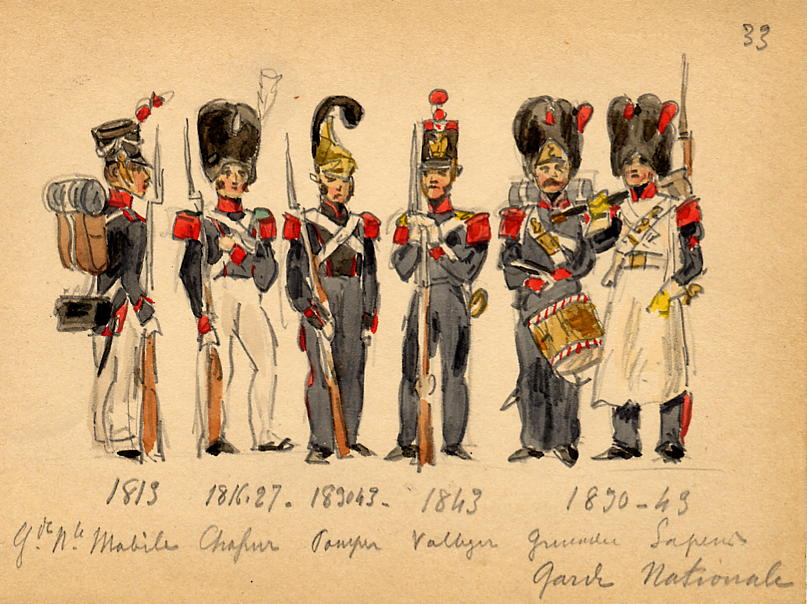 33
1813 1816.27. 183043- 1843 1830-43
G.de N.le Mobile Chasseur Pompier Voltigeur Grenadier Sapeur
Garde Nationale